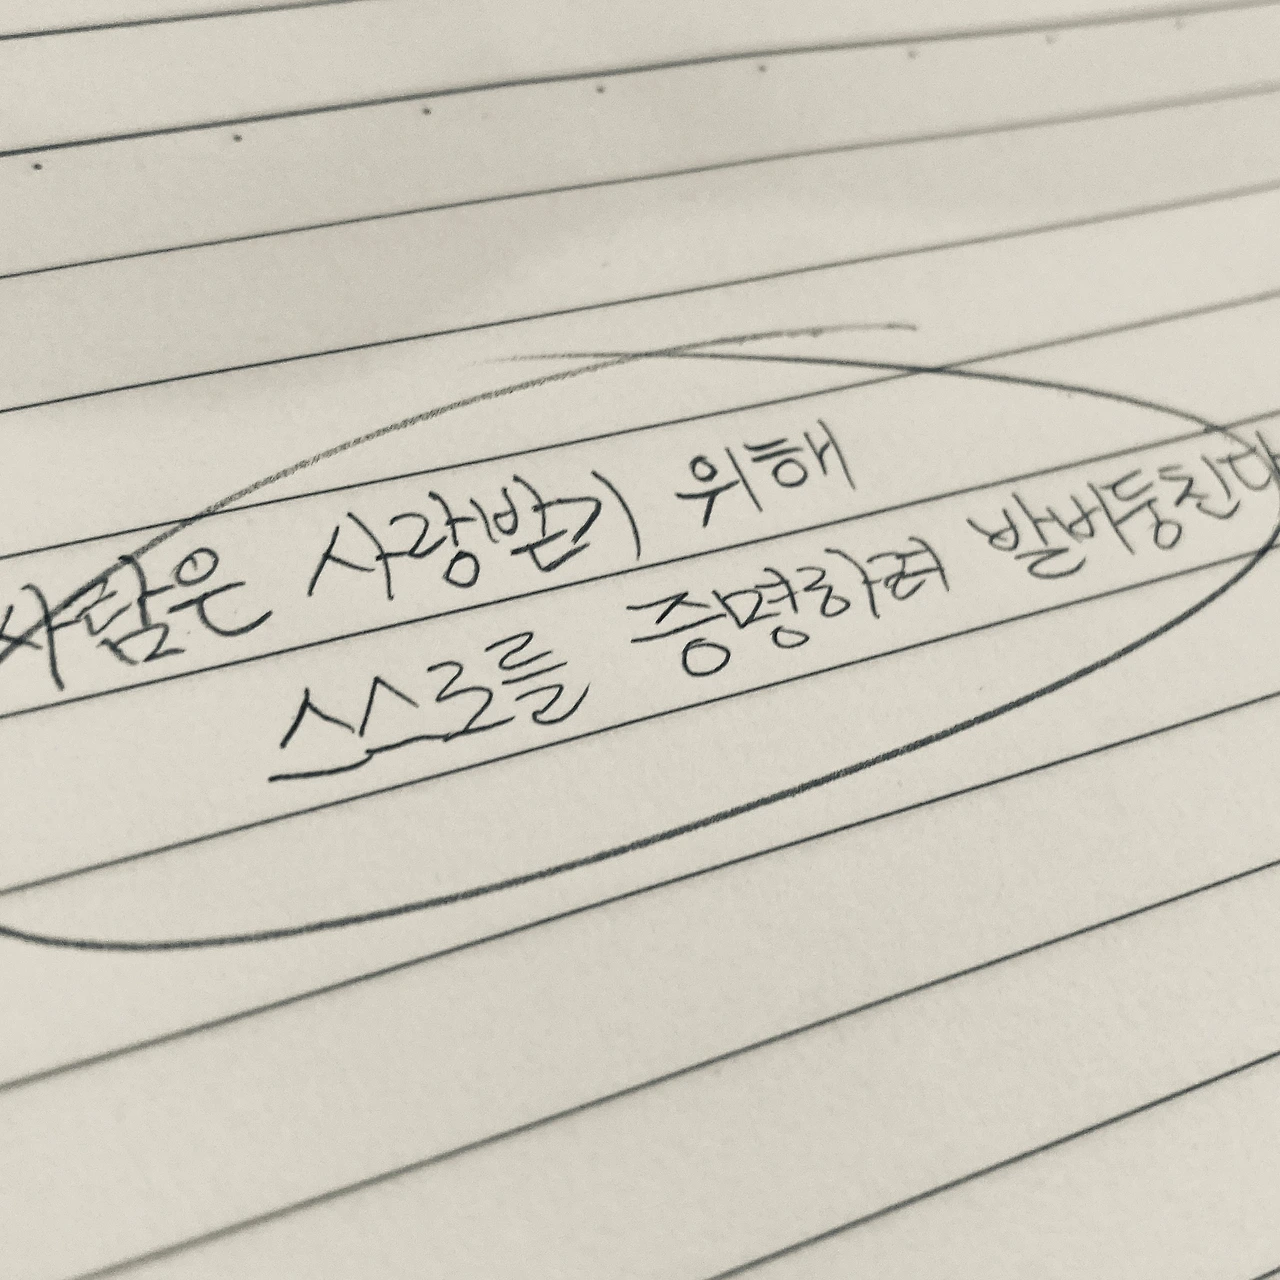 사람은 사랑받기 위해
스스로를 증명하려 발버둥친다